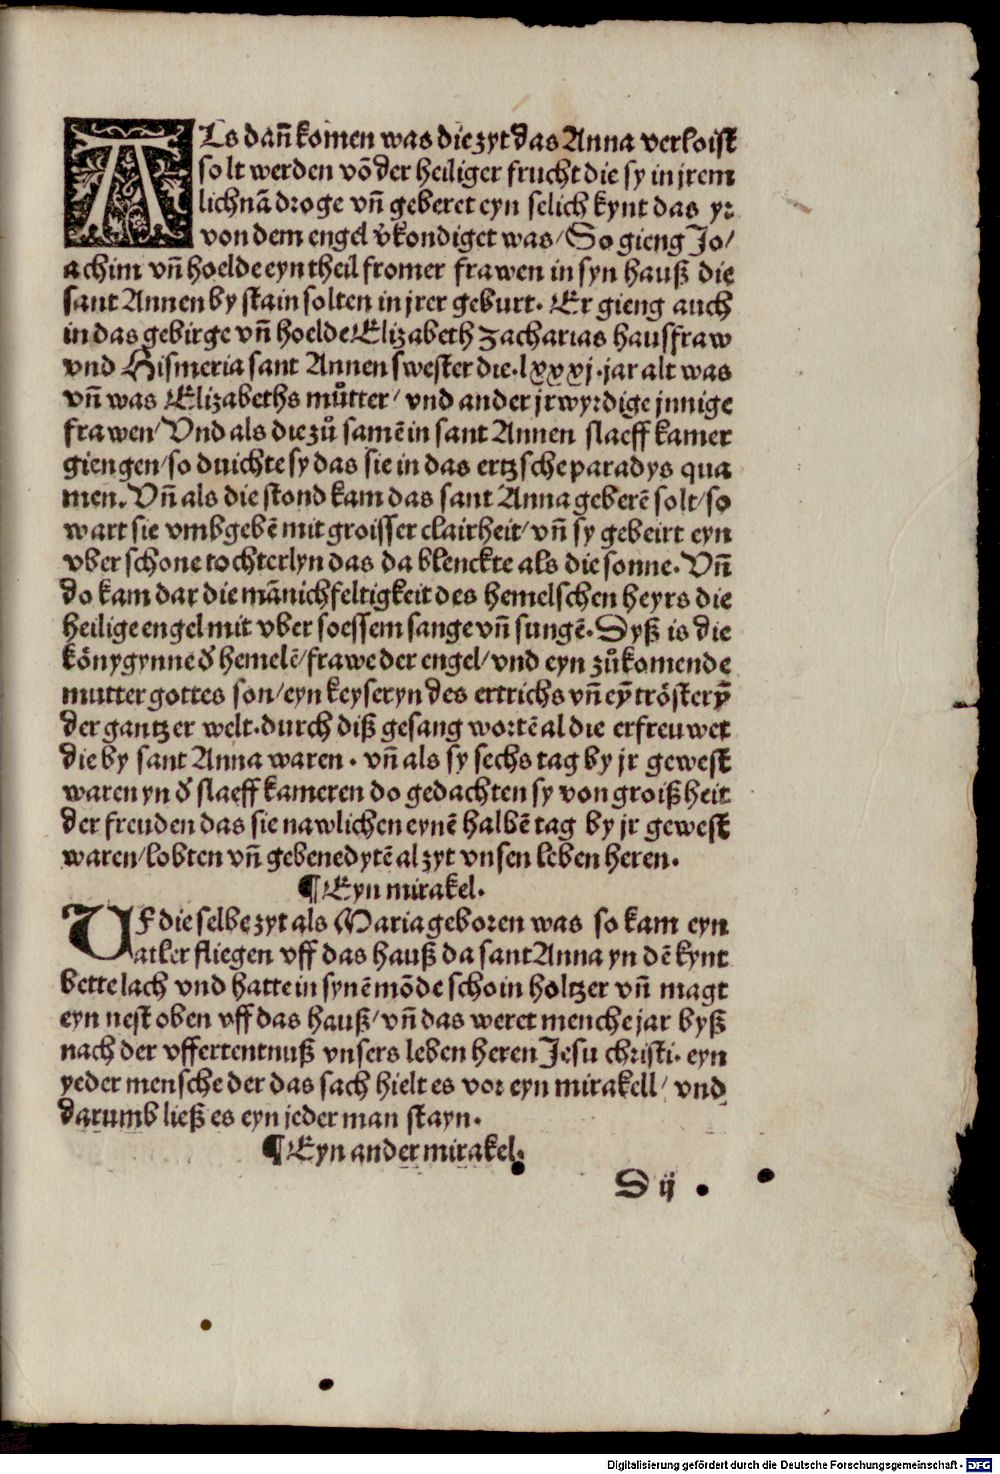 ALs dañ komen was die zyt das Anna verloist
solt werden võ der heiliger frucht die sy in jrem
lichnã droge vñ geberet eyn selich kynt das yr
von dem engel v̄kondiget was/ So gieng Jo/
achim vñ hoelde eyn theil fromer frawen in syn hauß die
sant Annen by stain solten in jrer geburt. Er gieng auch
in das gebirge vñ hoelde Elizabeth Zacharias hausfraw
vnd Hismeria sant Annen swester die .lxxxj. jar alt was
vñ was Elizabeths můtter/ vnd ander jrwyrdige jnnige
frawen/ Vnd als die zů samē in sant Annen slaeff kamer
giengen/ so duichte sy das sie in das ertzsche paradys qua
men. Vñ als die stond kam das sant Anna geberē solt/ so
wart sie vmbgebē mit groisser clairheit/ vñ sy gebeirt eyn
vber schone tochterlyn das da blenckte als die sonne. Vñ
do kam dar die mãnichfeltigkeit des hemelschen heyrs die
heilige engel mit vber soessem sange vñ sungē. Dyß is die
könygynne d̄ hemelē/ frawe der engel/ vnd eyn zůkomende
mutter gottes son/ eyn keyseryn des ertrichs vñ eȳ trösterȳ
der gantzer welt. durch diß gesang wortē al die erfreuwet
die by sant Anna waren. vñ als sy sechs tag by jr gewest
waren yn d̄ slaeff kameren do gedachten sy von groißheit
der freuden das sie nawlichen eynē halbē tag by jr gewest
waren/ lobten vñ gebenedytē al zyt vnsen leben heren.
¶ Eyn mirakel.
Vf die selbe zyt als Maria geboren was so kam eyn
atler fliegen vff das hauß da sant Anna yn dē kynt
bette lach vnd hatte in synē mõde schoin holtzer vñ magt
eyn nest oben vff das hauß/ vñ das weret menche jar byß
nach der vffertentnuß vnsers leben heren Jesu christi. eyn
yeder mensche der das sach hielt es vor eyn mirakell/ vnd
darumb ließ es eyn jeder man stayn.
¶ Eyn ander mirakel.
D ij
Digitalisierung gefördert durch die Deutsche Forschungsgemeinschaft - DFG